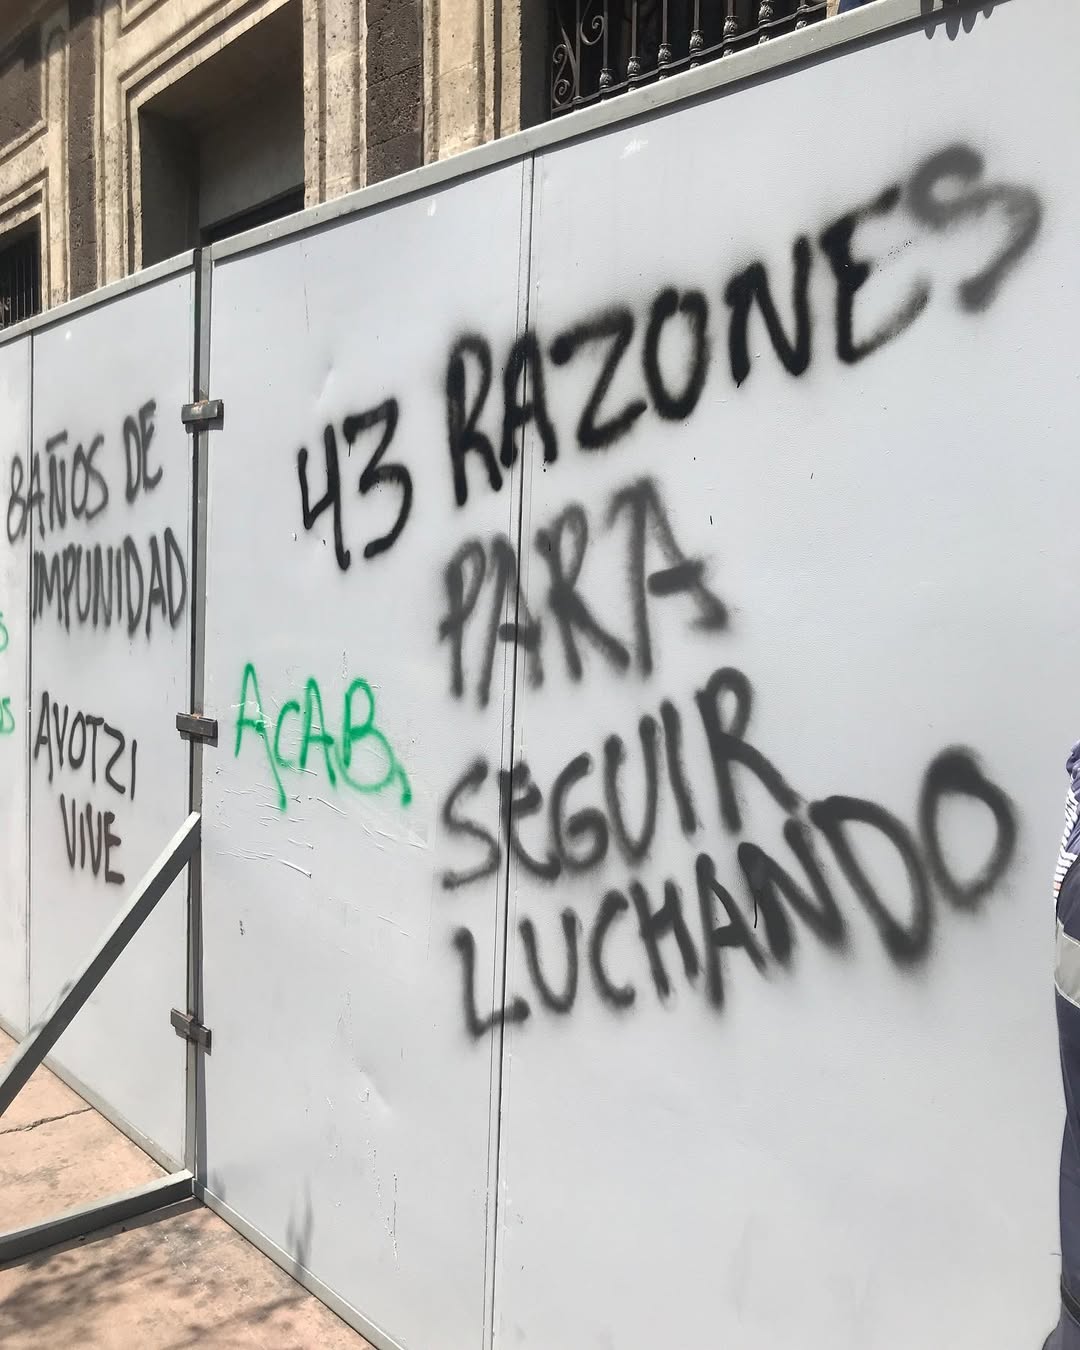 8 AÑOS DE
IMPUNIDAD
AYOTZI
VIVE
43 RAZONES
PARA
SEGUIR
LUCHANDO
ACAB